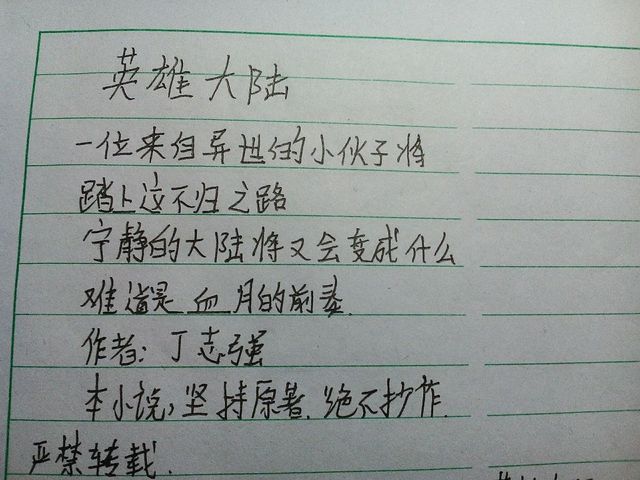 英雄大陆
一位来自异世的小伙子将
踏上这不归之路
宁静的大陆将又会变成什么
难道是血月的前奏.
作者:丁志强
本小说,坚持原著.绝不抄作.
严禁转载.